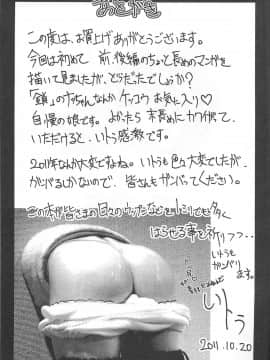 あとがき
この度は、お買上げありがとうございます。
今回は初めて 前、後編のちょと長めのマンガを
描いて見ましたが、どうだったでしょうか?
「鎖」の ちゃん なんか ケッコウ お気に入り♡
自慢の娘です。よかったら 末長めに カワイがって
いただけると、いトう感激です。
2011年なんか大変ですねぇ。いトうも色々大変でしたが、
ガンバるしかないので、皆さんもガンバってください。
この本が皆さまの日々の を 多く
はらせる事を祈りつつ・・
いトうも
ガンバリ
ます。
いトう
2011.10.20